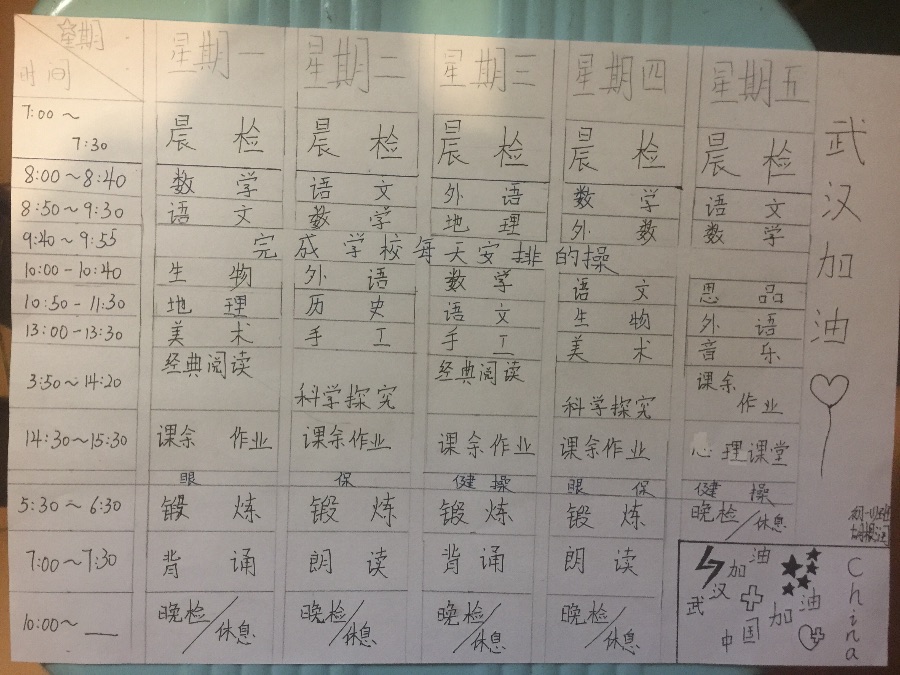 星期
时间
星期一 星期二 星期三 星期四 星期五
7:00～
7:30
晨检 晨检 晨检 晨检 晨检
8:00～8:40 数学 语文 外语 数学 语文
8:50～9:30 语文 数学 地理 外数 数学
9:40～9:55 完成学校每天安排的操
10:00-10:40 生物 外语 数学 语文 思品
10:50-11:30 地理 历史 语文 生物 外语
13:00-13:30 美术 手工 手工 美术 音乐
3:50～14:20 经典阅读 科学探究 经典阅读 科学探究 课余
作业
14:30～15:30 课余作业 课余作业 课余作业 课余作业 心理课堂
眼保健操 眼保健操
5:30～6:30 锻炼 锻炼 锻炼 锻炼 晚检/休息
7:00～7:30 背诵 朗读 背诵 朗读
10:00～__ 晚检/休息 晚检/休息 晚检/休息 晚检/休息
武汉加油
武汉加油
中国加油
China